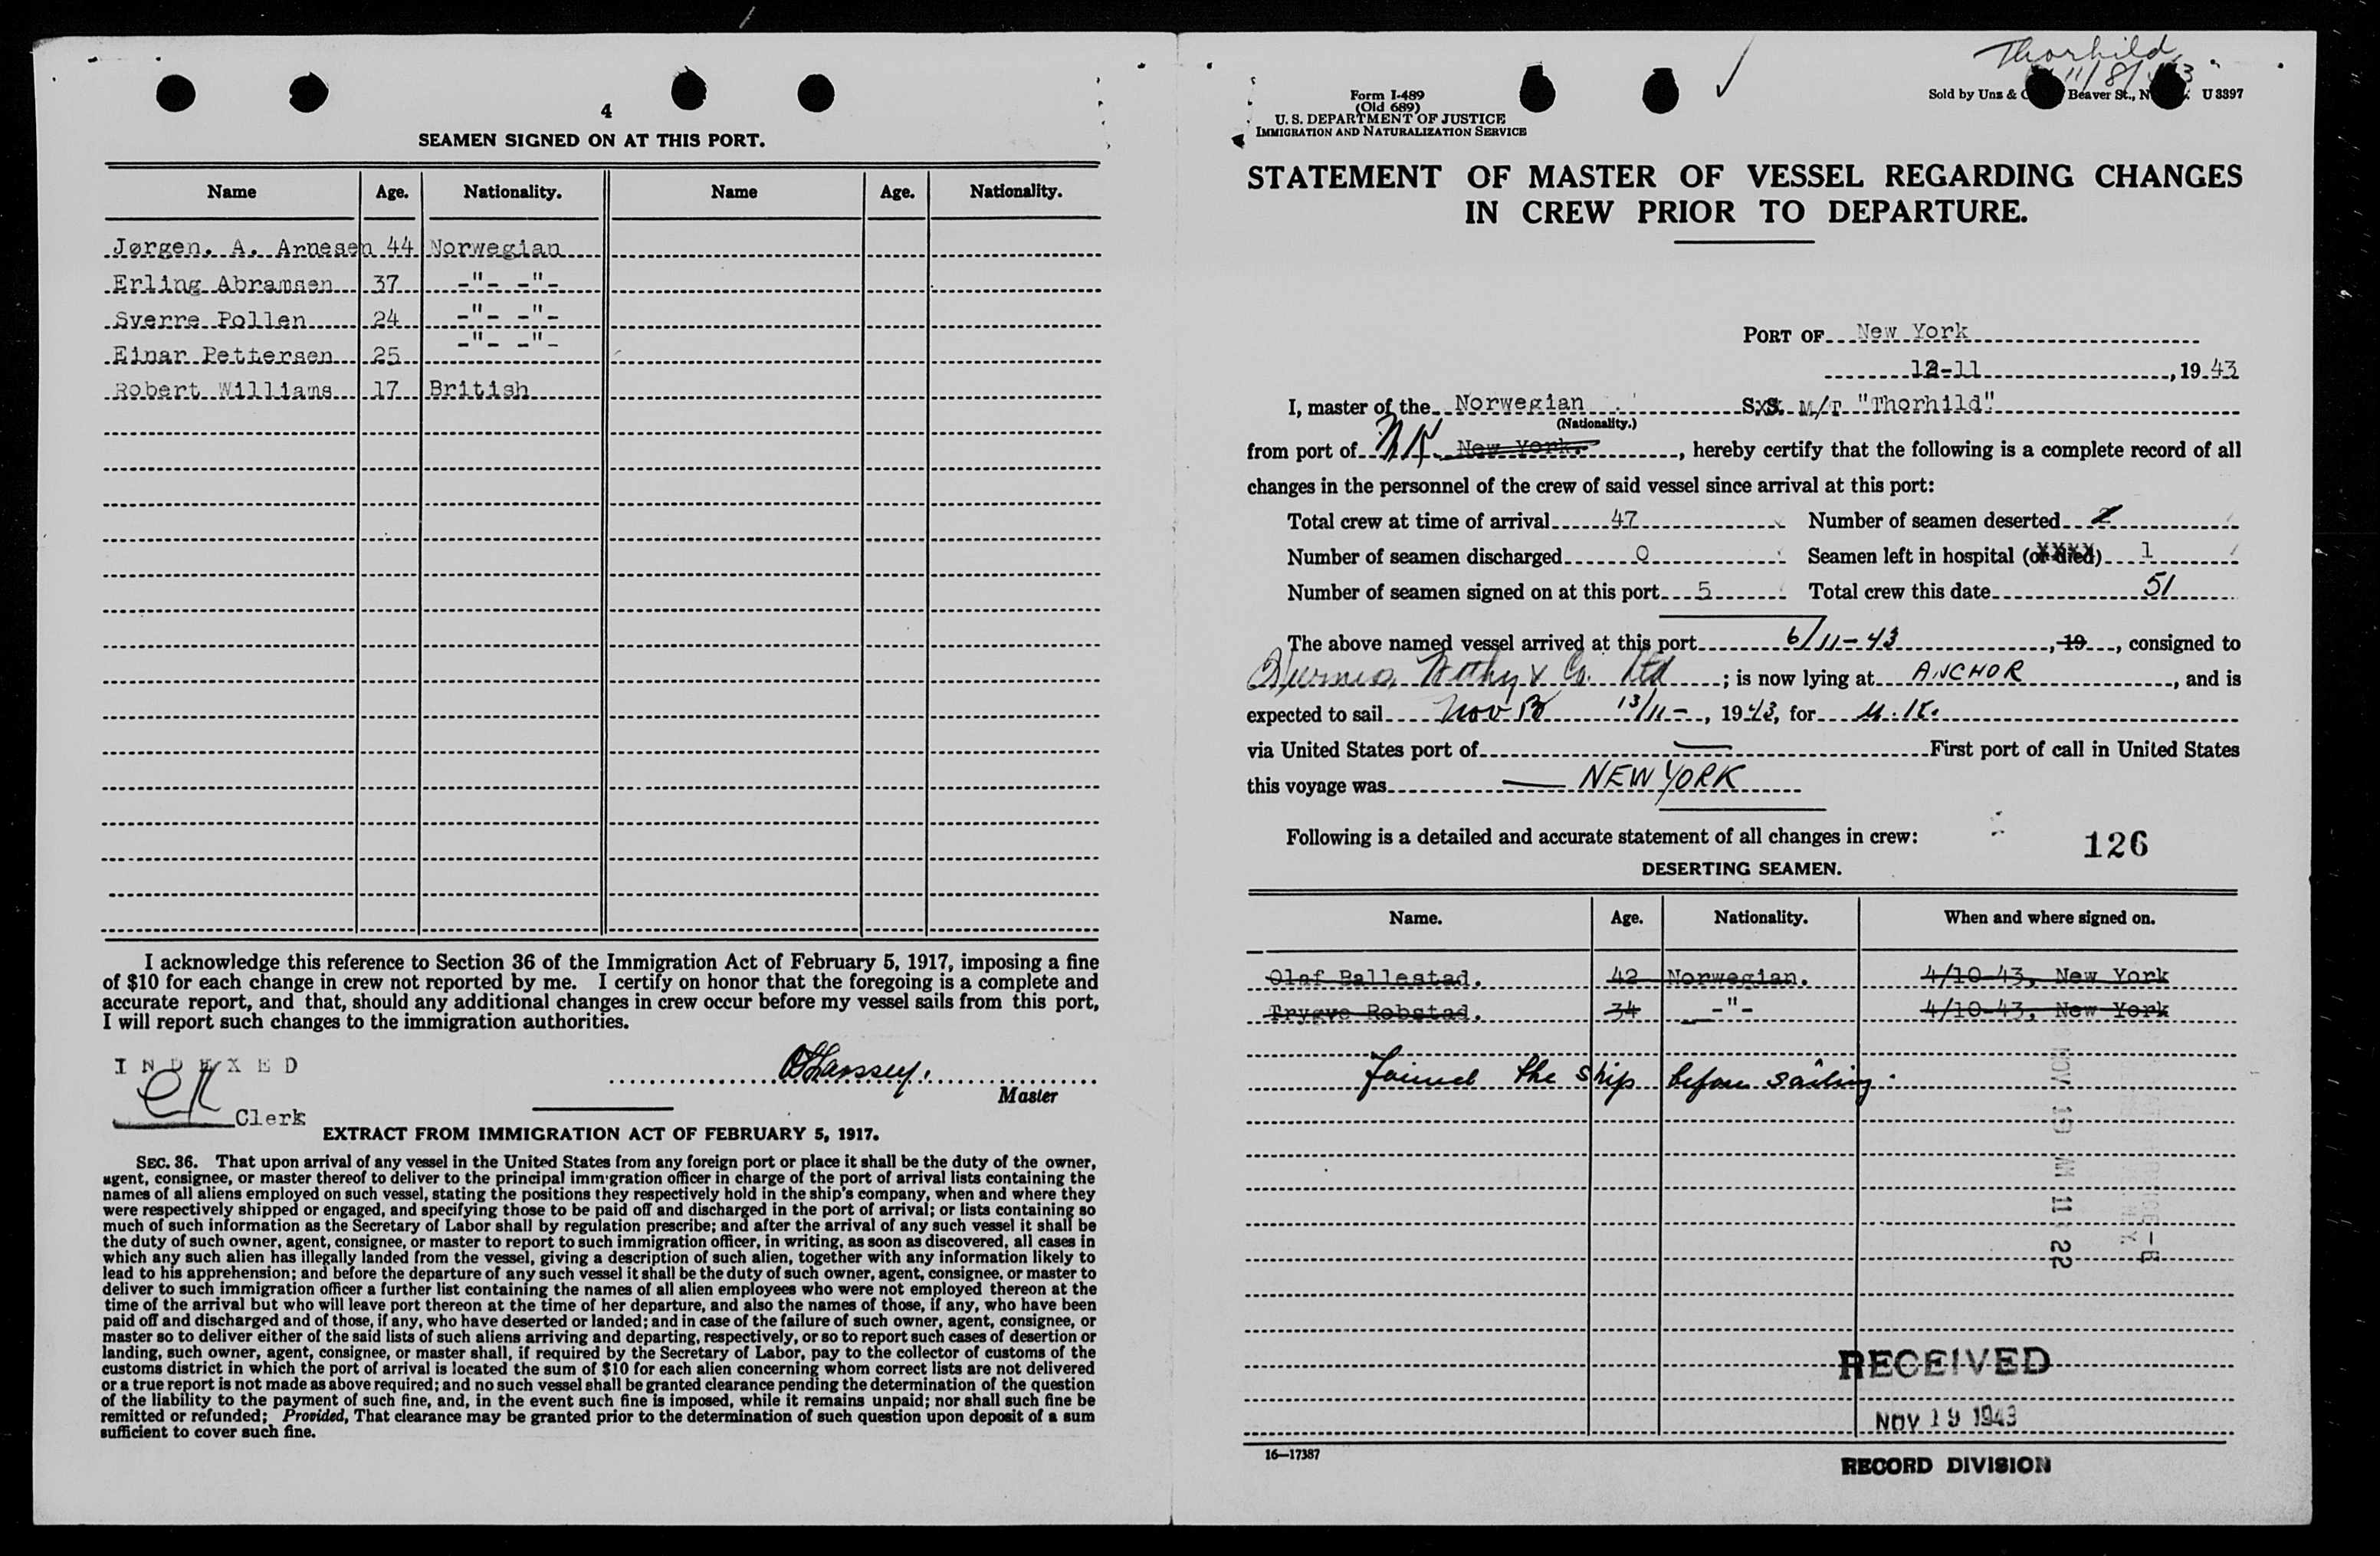 4
SEAMEN SIGNED ON AT THIS PORT.
Name Age. Nationality. Name Age. Nationality.
Jørgen. A. Arnesen 44 Norwegian
Erling Abramsen 37 -"- -"-
Sverre Pollen 24 -"- -"-
Einar Pettersen 25 -"- -"-
Robert Williams 17 British
I acknowledge this reference to Section 36 of the Immigration Act of February 5, 1917, imposing a fine
of $10 for each change in crew not reported by me. I certify on honor that the foregoing is a complete and
accurate report, and that, should any additional changes in crew occur before my vessel sails from this port,
I will report such changes to the immigration authorities.
INDEXED
Clerk
Master
EXTRACT FROM IMMIGRATION ACT OF FEBRUARY 5, 1917.
SEC. 36. That upon arrival of any vessel in the United States from any foreign port or place it shall be the duty of the owner,
agent, consignee, or master thereof to deliver to the principal imm'gration officer in charge of the port of arrival lists containing the
names of all aliens employed on such vessel, stating the positions they respectively hold in the ship's company, when and where they
were respectively shipped or engaged, and specifying those to be paid off and discharged in the port of arrival; or lists containing so
much of such information as the Secretary of Labor shall by regulation prescribe; and after the arrival of any such vessel it shall be
the duty of such owner, agent, consignee, or master to report to such immigration officer, in writing, as soon as discovered, all cases in
which any such alien has illegally landed from the vessel, giving a description of such alien, together with any information likely to
lead to his apprehension; and before the departure of any such vessel it shall be the duty of such owner, agent, consignee, or master to
deliver to such immigration officer a further list containing the names of all alien employees who were not employed thereon at the
time of the arrival but who will leave port thereon at the time of her departure, and also the names of those, if any, who have been
paid off and discharged and of those, if any, who have deserted or landed; and in case of the failure of such owner, agent, consignee, or
master so to deliver either of the said lists of such aliens arriving and departing, respectively, or so to report such cases of desertion or
landing, such owner, agent, consignee, or master shall, if required by the Secretary of Labor, pay to the collector of customs of the
customs district in which the port of arrival is located the sum of $10 for each alien concerning whom correct lists are not delivered
or a true report is not made as above required; and no such vessel shall be granted clearance pending the determination of the question
of the liability to the payment of such fine, and, in the event such fine is imposed, while it remains unpaid; nor shall such fine be
remitted or refunded; Provided, That clearance may be granted prior to the determination of such question upon deposit of a sum
sufficient to cover such fine.
Thorhild
11/8/43
Form I-489
(Old 689)
U. S. DEPARTMENT OF JUSTICE
IMMIGRATION AND NATURALIZATION SERVICE
Sold by Unz & Beaver St., N U 3397
STATEMENT OF MASTER OF VESSEL REGARDING CHANGES
IN CREW PRIOR TO DEPARTURE.
PORT OF New York
12-11, 19 43
I, master of the Norwegian S.S. M/T "Thorhild"
(Nationality.)
from port of New York., hereby certify that the following is a complete record of all
changes in the personnel of the crew of said vessel since arrival at this port:
Total crew at time of arrival 47 Number of seamen deserted 2
Number of seamen discharged 0 Seamen left in hospital (or died) 1
Number of seamen signed on at this port 5 Total crew this date 51
The above named vessel arrived at this port 6/11-43, 19, consigned to
Withy & Co. Ltd; is now lying at ANCHOR, and is
expected to sail Nov 13/11-, 1943, for U.K.
via United States port of — First port of call in United States
this voyage was — NEW YORK
Following is a detailed and accurate statement of all changes in crew:
126
DESERTING SEAMEN.
Name. Age. Nationality. When and where signed on.
Olaf Ballestad. 42 Norwegian. 4/10-43, New York
Trygve Robstad. 34 -"- 4/10-43, New York
Joined the ship before sailing.
NOV 19 AM 11 22
RECEIVED
NOV 19 1943
16—17387
RECORD DIVISION